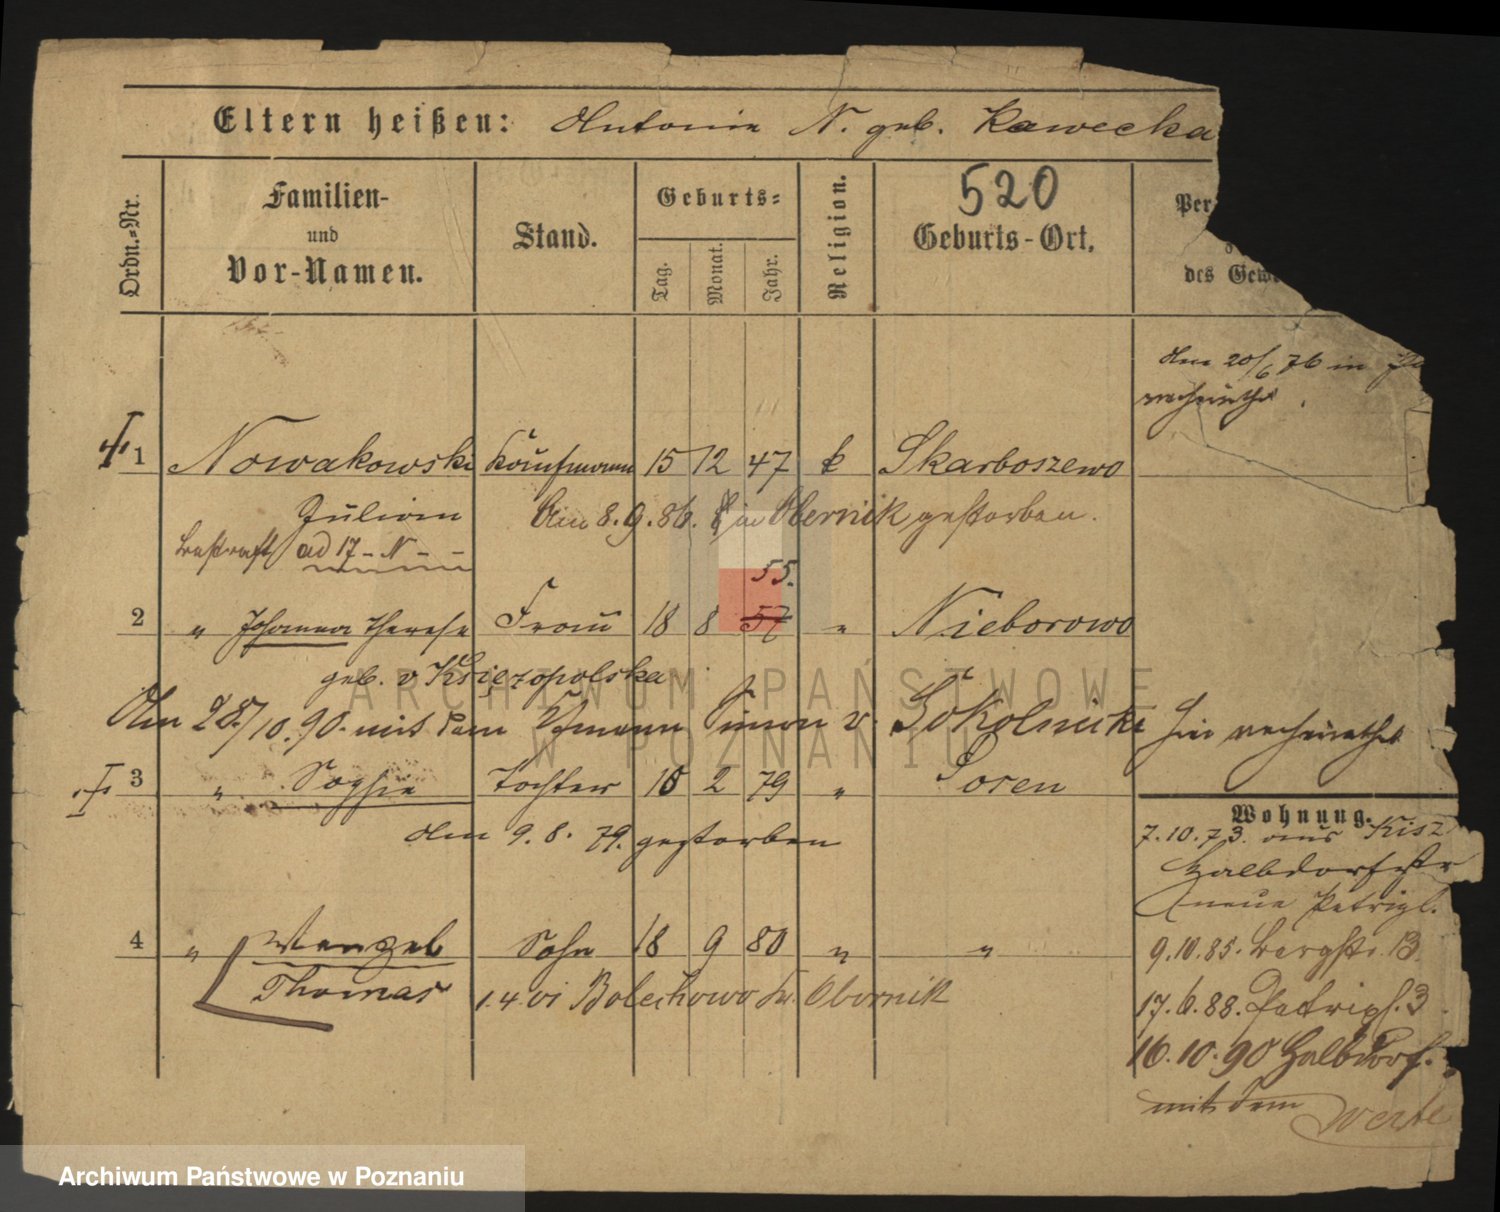 Eltern heißen: Antonie N. geb. Kawecka
Ordn.-Nr.
Familien-
und
Vor-Namen.
Stand.
Geburts-
Tag.
Monat.
Jahr.
Religion.
520
Geburts-Ort.
Per
des Gewe
den 20/6 76 in
verheirathet.
1 Nowakowski Kaufmann 15 12 47 k Skarboszewo
Julian Am 8.9.86. in Obernik gestorben.
bestraft ad 17-N--
55.
2 " Johanna Therese Frau 18 8 57 " Nieborowo
geb. v Księzopolska
Am 28./10.90. mit dem Simon v. Sokolnicki hier verheirathet
3 " Sophie Tochter 18 2 79 " Posen
den 9.8. 79. gestorben
4 " Wenzel Sohn 18 9 80 " "
Thomas 1.4.01 Bolechowo Kr. Obornik
Wohnung.
7.10.73. aus Kisz
Halbdorfstr
neue Petripl.
9.10.85. Bergstr. 13.
17.6.88. Petripl. 3.
16.10.90 Halbdorf.
mit dem
Archiwum Państwowe w Poznaniu
ARCHIWUM PAŃSTWOWE
W POZNANIU